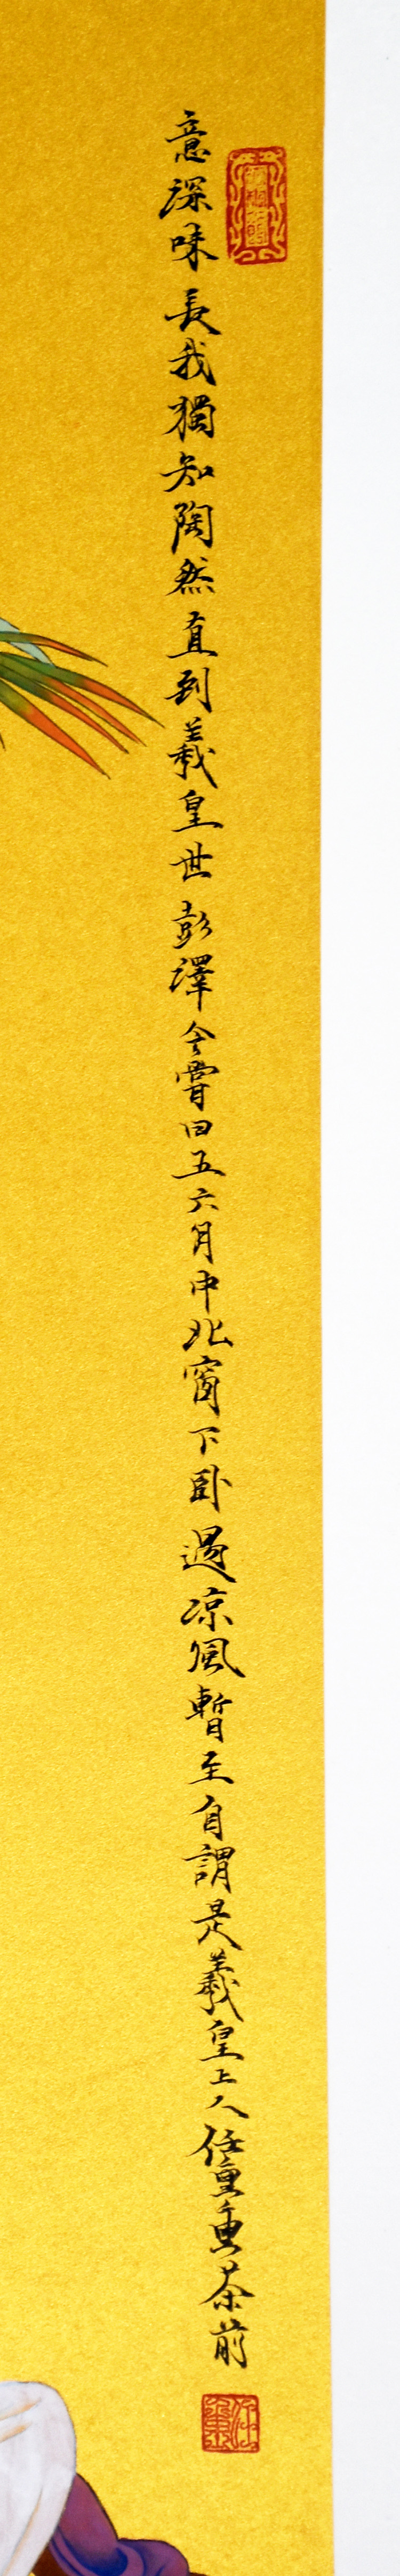 意深味長我獨知陶然直到羲皇世彭澤令嘗曰五六月中北窗下卧遇涼風暫至自謂是羲皇上人任重重茶前
任重